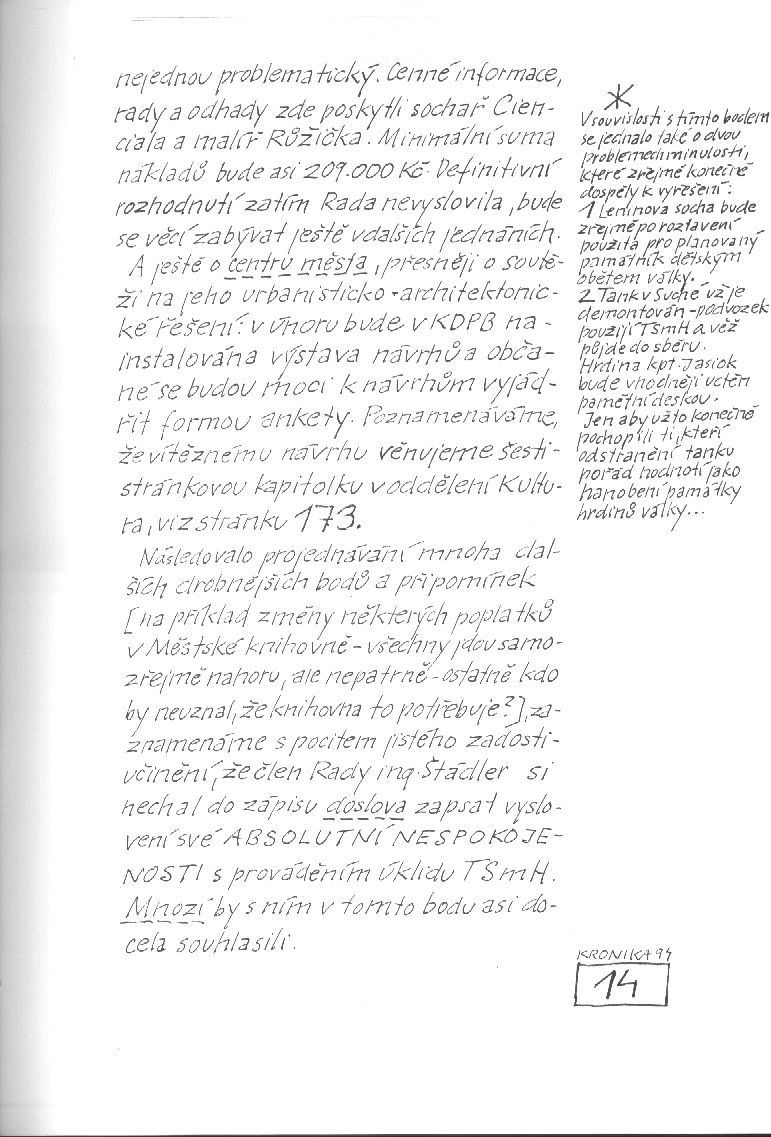 nejednou problematický. Cenné informace,
rady a odhady zde poskytli sochař Cien-
ciala a malíř Růžička. Minimální suma
nákladů bude asi 209.000 Kč. Definitivní
rozhodnutí zatím Rada nevyslovila, bude
se věcí zabývat ještě v dalších jednáních.
A ještě o centru města, přesněji o soutě-
ži na jeho urbanisticko-architektonic-
ké řešení: v únoru bude v KDPB na-
instalována výstava návrhů a obča-
né se budou moci k návrhům vyjád-
řit formou ankety. Poznamenáváme,
že vítěznému návrhu věnujeme šesti-
stránkovou kapitolku v oddělení Kultu-
ra, viz stránku 173.
Následovalo projednávání mnoha dal-
ších drobnějších bodů a připomínek
[na příklad změny některých poplatků
v Městské knihovně - všechny jdou samo-
zřejmě nahoru, ale nepatrně - ostatně kdo
by neuznal, že knihovna to potřebuje?], za-
znamenáme s pocitem jistého zadosti-
učinění, že člen Rady ing. Štádler si
nechal do zápisu doslova zapsat vyslo-
vení své ABSOLUTNÍ NESPOKOJE-
NOSTI s prováděním úklidu TSmH.
Mnozí by s ním v tomto bodu asi do-
cela souhlasili.
*
V souvislosti s tímto bodem
se jednalo také o dvou
problémech minulosti,
které zřejmě konečně
dospěly k vyřešení:
1 Leninova socha bude
zřejmě po roztavení
použita pro plánovaný
památník dětským
obětem války.
2. Tank v Suché už je
demontován - podvozek
použijí TSmH a věž
půjde do sběru.
Hrdina kpt. Jasiok
bude vhodněji uctěn
pamětní deskou.
Jen aby už to konečně
pochopili ti, kteří
odstranění tanku
pořád hodnotí jako
hanobení památky
hrdinů války...
KRONIKA 94
14